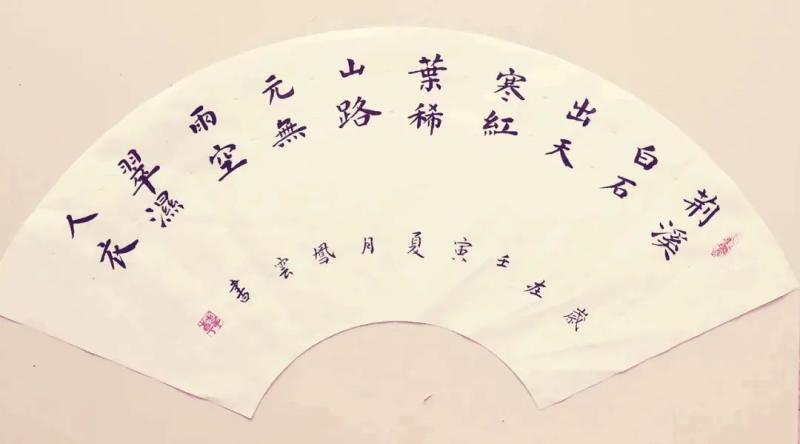 荆溪
白石
出天
寒紅
葉稀
山路
元無
雨空
翠濕
人衣
歲在壬寅夏月 雲書